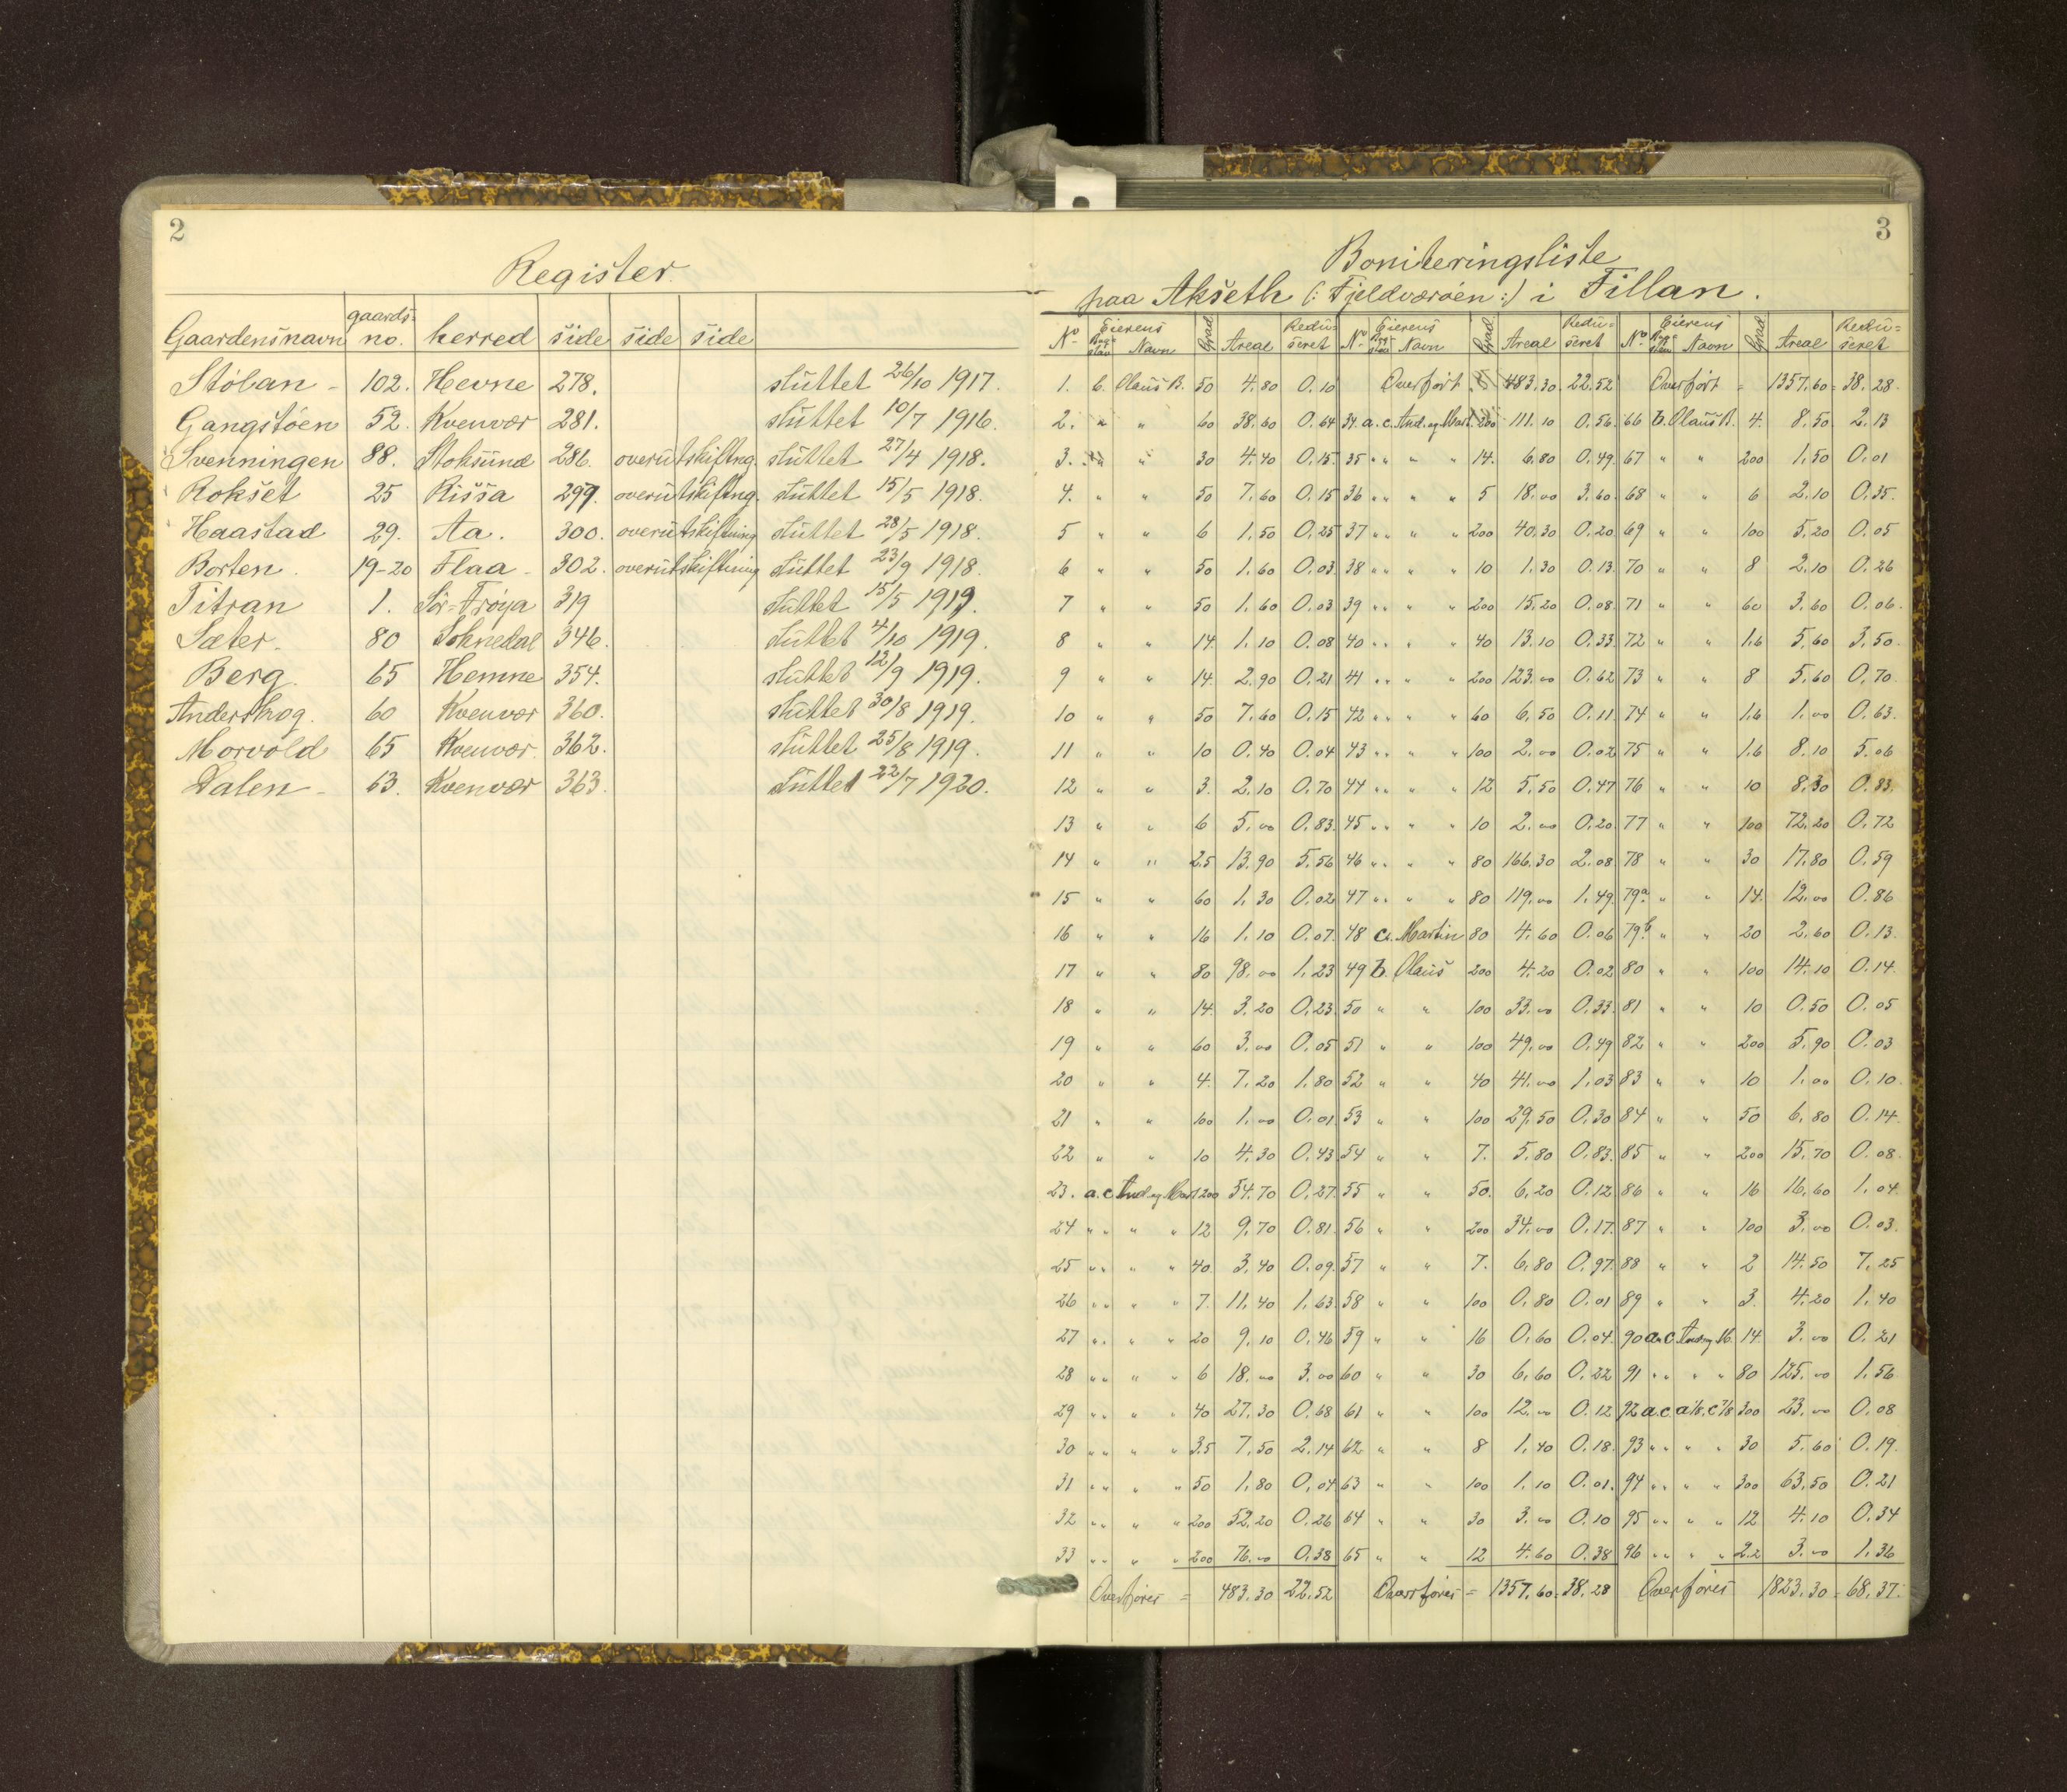 2
Register
Gaardensnavn gaards=no. herred side side side
Stölan - 102. Hevne 278. sluttet 26/10 1917.
Gangstöen 52. Kvenvær 281. sluttet 10/7 1916.
Svenningen 88. Stoksund 286. overutskiftng. sluttet 27/4 1918.
Rokset 25 Rissa 299. overutskiftng. sluttet 15/5 1918.
Haastad 29. Aa. 300. overutskiftning sluttet 28/5 1918.
Borten. 19-20 Flaa - 302. overutskiftning sluttet 23/9 1918.
Titran 1. Sör=Fröya 319 sluttet 15/5 1919.
Sæter. 80 Soknedal 346. sluttet 4/10 1919.
Berg. 65 Hemne 354. sluttet 12/9 1919.
Anderskog. 60 Kvenvær 360. sluttet 30/8 1919.
Morvold 65 Kvenvær. 362. sluttet 25/8 1919.
Dalen - 63. Kvenvær 363. sluttet 22/7 1920.
3
Boniteringsliste
paa Akseth (: Fjeldværöen :) i Fillan.
No Eierens Bogstav Navn Grad Areal Redu=seret No Eierens Bogstav Navn Grad Areal Redu=seret No Eierens Bogstav Navn Grad Areal Redu=seret
1. b. Olaus B. 50 4.80 0.10 Overfört 483.30 22.52 Overfört = 1357.60 = 38.28
2. " " 60 38.60 0.64 34. a.c. And. og Mart. 200 111.10 0.56 66 b. Olaus B. 4. 8.50 2.13
3. " " 30 4.40 0.15 35 " " " " 14. 6.80 0.49 67 " " 200 1.50 0.01
4. " " 50 7.60 0.15 36 " " " " 5 18.00 3.60 68 " " 6 2.10 0.35
5 " " 6 1.50 0.25 37 " " " " 200 40.30 0.20 69 " " 100 5.20 0.05
6 " " 50 1.60 0.03 38 " " " " 10 1.30 0.13 70 " " 8 2.10 0.26
7 " " 50 1.60 0.03 39 " " " " 200 15.20 0.08 71 " " 60 3.60 0.06
8 " " 14. 1.10 0.08 40 " " " " 40 13.10 0.33 72 " " 1.6 5.60 3.50
9 " " 14. 2.90 0.21 41 " " " " 200 123.00 0.62 73 " " 8 5.60 0.70
10 " " 50 7.60 0.15 42 " " " " 60 6.50 0.11 74 " " 1.6 1.00 0.63
11 " " 10 0.40 0.04 43 " " " " 100 2.00 0.02 75 " " 1.6 8.10 5.06
12 " " 3. 2.10 0.70 44 " " " " 12 5.50 0.47 76 " " 10 8.30 0.83
13 " " 6 5.00 0.83 45 " " " " 10 2.00 0.20 77 " " 100 72.20 0.72
14 " " 2.5 13.90 5.56 46 " " " " 80 166.30 2.08 78 " " 30 17.80 0.59
15 " " 60 1.30 0.02 47 " " " " 80 119.00 1.49 79a " " 14. 12.00 0.86
16 " " 16 1.10 0.07 48 c. Martin 80 4.60 0.06 79b " " 20 2.60 0.13
17 " " 80 98.00 1.23 49 b. Olaus 200 4.20 0.02 80 " " 100 14.10 0.14
18 " " 14. 3.20 0.23 50 " " 100 33.00 0.33 81 " " 10 0.50 0.05
19 " " 60 3.00 0.05 51 " " 100 49.00 0.49 82 " " 200 5.90 0.03
20 " " 4. 7.20 1.80 52 " " 40 41.00 1.03 83 " " 10 1.00 0.10
21 " " 100 1.00 0.01 53 " " 100 29.50 0.30 84 " " 50 6.80 0.14
22 " " 10 4.30 0.43 54 " " 7. 5.80 0.83 85 " " 200 15.70 0.08
23. a.c. And. og Mart. 200 54.70 0.27 55 " " 50. 6.20 0.12 86 " " 16 16.60 1.04
24 " " " " 12 9.70 0.81 56 " " 200 34.00 0.17 87 " " 100 3.00 0.03
25 " " " " 40 3.40 0.09 57 " " 7. 6.80 0.97 88 " " 2 14.50 7.25
26 " " " " 7. 11.40 1.63 58 " " 100 0.80 0.01 89 " " 3. 4.20 1.40
27 " " " " 20 9.10 0.46 59 " " 16 0.60 0.04 90 a.c. And og M. 14. 3.00 0.21
28 " " " " 6 18.00 3.00 60 " " 30 6.60 0.22 91 " " " " 80 125.00 1.56
29 " " " " 40 27.30 0.68 61 " " 100 12.00 0.12 92 a.c. a 1/8. c 7/8 300 23.00 0.08
30 " " " " 3.5 7.50 2.14 62 " " 8 1.40 0.18 93 " " " " 30 5.60 0.19
31 " " " " 50 1.80 0.04 63 " " 100 1.10 0.01 94 " " " " 300 63.50 0.21
32 " " " " 200 52.20 0.26 64 " " 30 3.00 0.10 95 " " " " 12 4.10 0.34
33 " " " " 200 76.00 0.38 65 " " 12 4.60 0.38 96 " " " " 2.2 3.00 1.36
Overföres = 483.30 22.52 Overföres = 1357.60 = 38.28 Overföres 1823.30 = 68.37